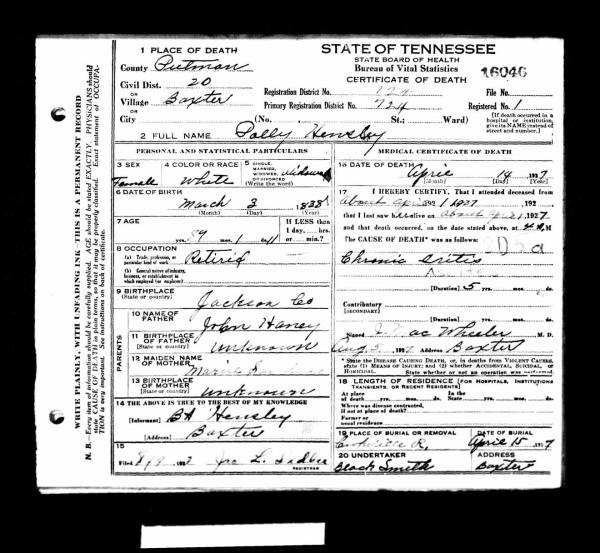 STATE OF TENNESSEE
STATE BOARD OF HEALTH
Bureau of Vital Statistics
CERTIFICATE OF DEATH
16046
1 PLACE OF DEATH
County Putman
Civil Dist. 20
OR
Village Baxter
OR
City (No. St.; Ward)
Registration District No. 724 File No.
Primary Registration District No. 724 Registered No. 1
[If death occurred in a hospital or institution, give its NAME instead of street and number.]
2 FULL NAME Polly Hensley
PERSONAL AND STATISTICAL PARTICULARS
3 SEX Female
4 COLOR OR RACE White
5 SINGLE, MARRIED, WIDOWED, OR DIVORCED (Write the word)
6 DATE OF BIRTH March 3 1838
(Month) (Day) (Year)
7 AGE
89 yrs. 1 mos. 11 ds.
If LESS than 1 day, hrs. or min.?
8 OCCUPATION
(a) Trade, profession, or particular kind of work Retired
(b) General nature of industry, business, or establishment in which employed (or employer)
9 BIRTHPLACE (State or country) Jackson Co
PARENTS
10 NAME OF FATHER John Haney
11 BIRTHPLACE OF FATHER (State or country) Unknown
12 MAIDEN NAME OF MOTHER
13 BIRTHPLACE OF MOTHER (State or country) Unknown
14 THE ABOVE IS TRUE TO THE BEST OF MY KNOWLEDGE
(Informant) BA Hensley
(Address) Baxter
15
Filed 8/9 1927
REGISTRAR
MEDICAL CERTIFICATE OF DEATH
16 DATE OF DEATH April 14 1927
(Month) (Day) (Year)
17 I HEREBY CERTIFY, That I attended deceased from
About April 1 1927, 192
that I last saw her alive on about April 1 1927
and that death occurred, on the date stated above, at 4 M
The CAUSE OF DEATH* was as follows:
Chronic
(Duration) 5 yrs. mos. ds.
Contributory
(SECONDARY)
(Duration) yrs. mos. ds.
Signed Mac Wheeler M. D.
Aug 5 1927 Address Baxter
*State the DISEASE CAUSING DEATH, or, in deaths from VIOLENT CAUSES, state (1) MEANS OF INJURY; and (2) whether ACCIDENTAL, SUICIDAL, or HOMICIDAL. State whether or not an operation was performed.
18 LENGTH OF RESIDENCE (FOR HOSPITALS, INSTITUTIONS TRANSIENTS, OR RECENT RESIDENTS)
At place of death yrs. mos. ds. In the State yrs. mos. ds.
Where was disease contracted, if not at place of death?
Former or usual residence
19 PLACE OF BURIAL OR REMOVAL DATE OF BURIAL
Cookville R, April 15, 1927
20 UNDERTAKER ADDRESS
Black Smith Baxter
WRITE PLAINLY, WITH UNFADING INK—THIS IS A PERMANENT RECORD
N. B.—Every item of information should be carefully supplied. AGE should be stated EXACTLY. PHYSICIANS should state CAUSE OF DEATH in plain terms, so that it may be properly classified. Exact statement of OCCUPATION is very important. See instructions on back of certificate.